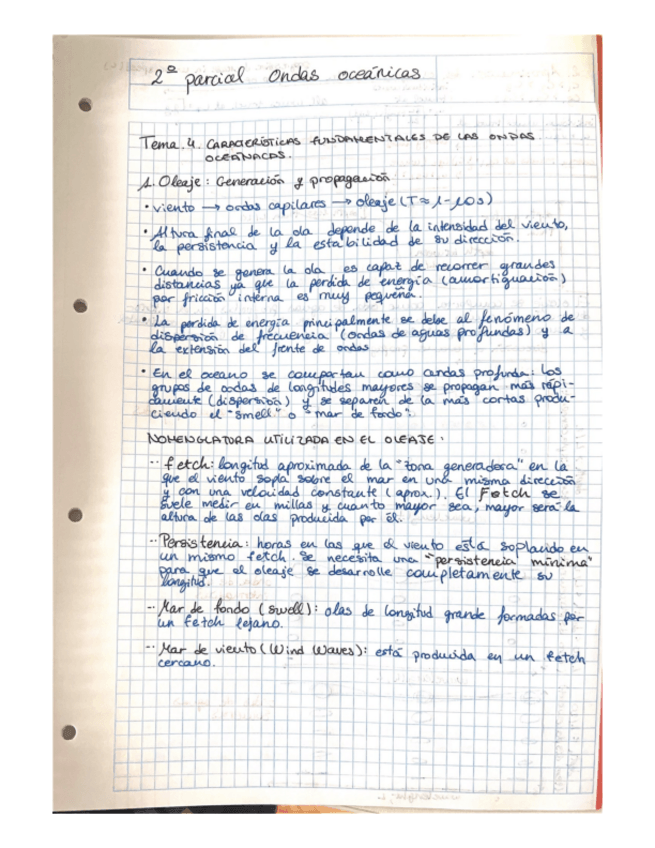 2º parcial Ondas oceánicas
Tema.4. CARACTERÍSTICAS FUNDAMENTALES DE LAS ONDAS
OCEÁNACAS.
1. Oleaje: Generación y propagación
• viento → ondas capilares → oleaje (T≈1-10s)
• Altura final de la ola depende de la intensidad del viento,
la persistencia y la estabilidad de su dirección.
• Cuando se genera la ola es capaz de recorrer grandes
distancias ya que la perdida de energía (amortiguación)
por fricción interna es muy pequeña.
• La perdida de energía principalmente se debe al fenómeno de
dispersión de frecuencia (ondas de aguas profundas) y a
la extensión del frente de ondas
• En el oceano se comportan como ondas profunda: los
grupos de ondas de longitudes mayores se propagan más rápi-
damente (dispersión) y se separen de la más cortas produ-
ciendo el "smell" o "mar de fondo".
NOMENGLATORA UTILIZADA EN EL OLEAJE:
-· fetch: longitud aproximada de la "zona generadora" en la
que el viento sopla sobre el mar en una misma dirección
y con una velocidad constante (aprox.). El Fetch se
suele medir en millas y cuanto mayor sea, mayor será la
altura de las olas producida por él.
-· Persistencia: horas en las que el viento está soplando en
un mismo fetch. Se necesita una "persistencia mínima"
para que el oleaje se desarrolle completamente su
longitud.
-· Mar de fondo (swell): olas de longitud grande formadas por
un fetch lejano.
-· Mar de viento (Wind Waves): está producida en un fetch
cercano.